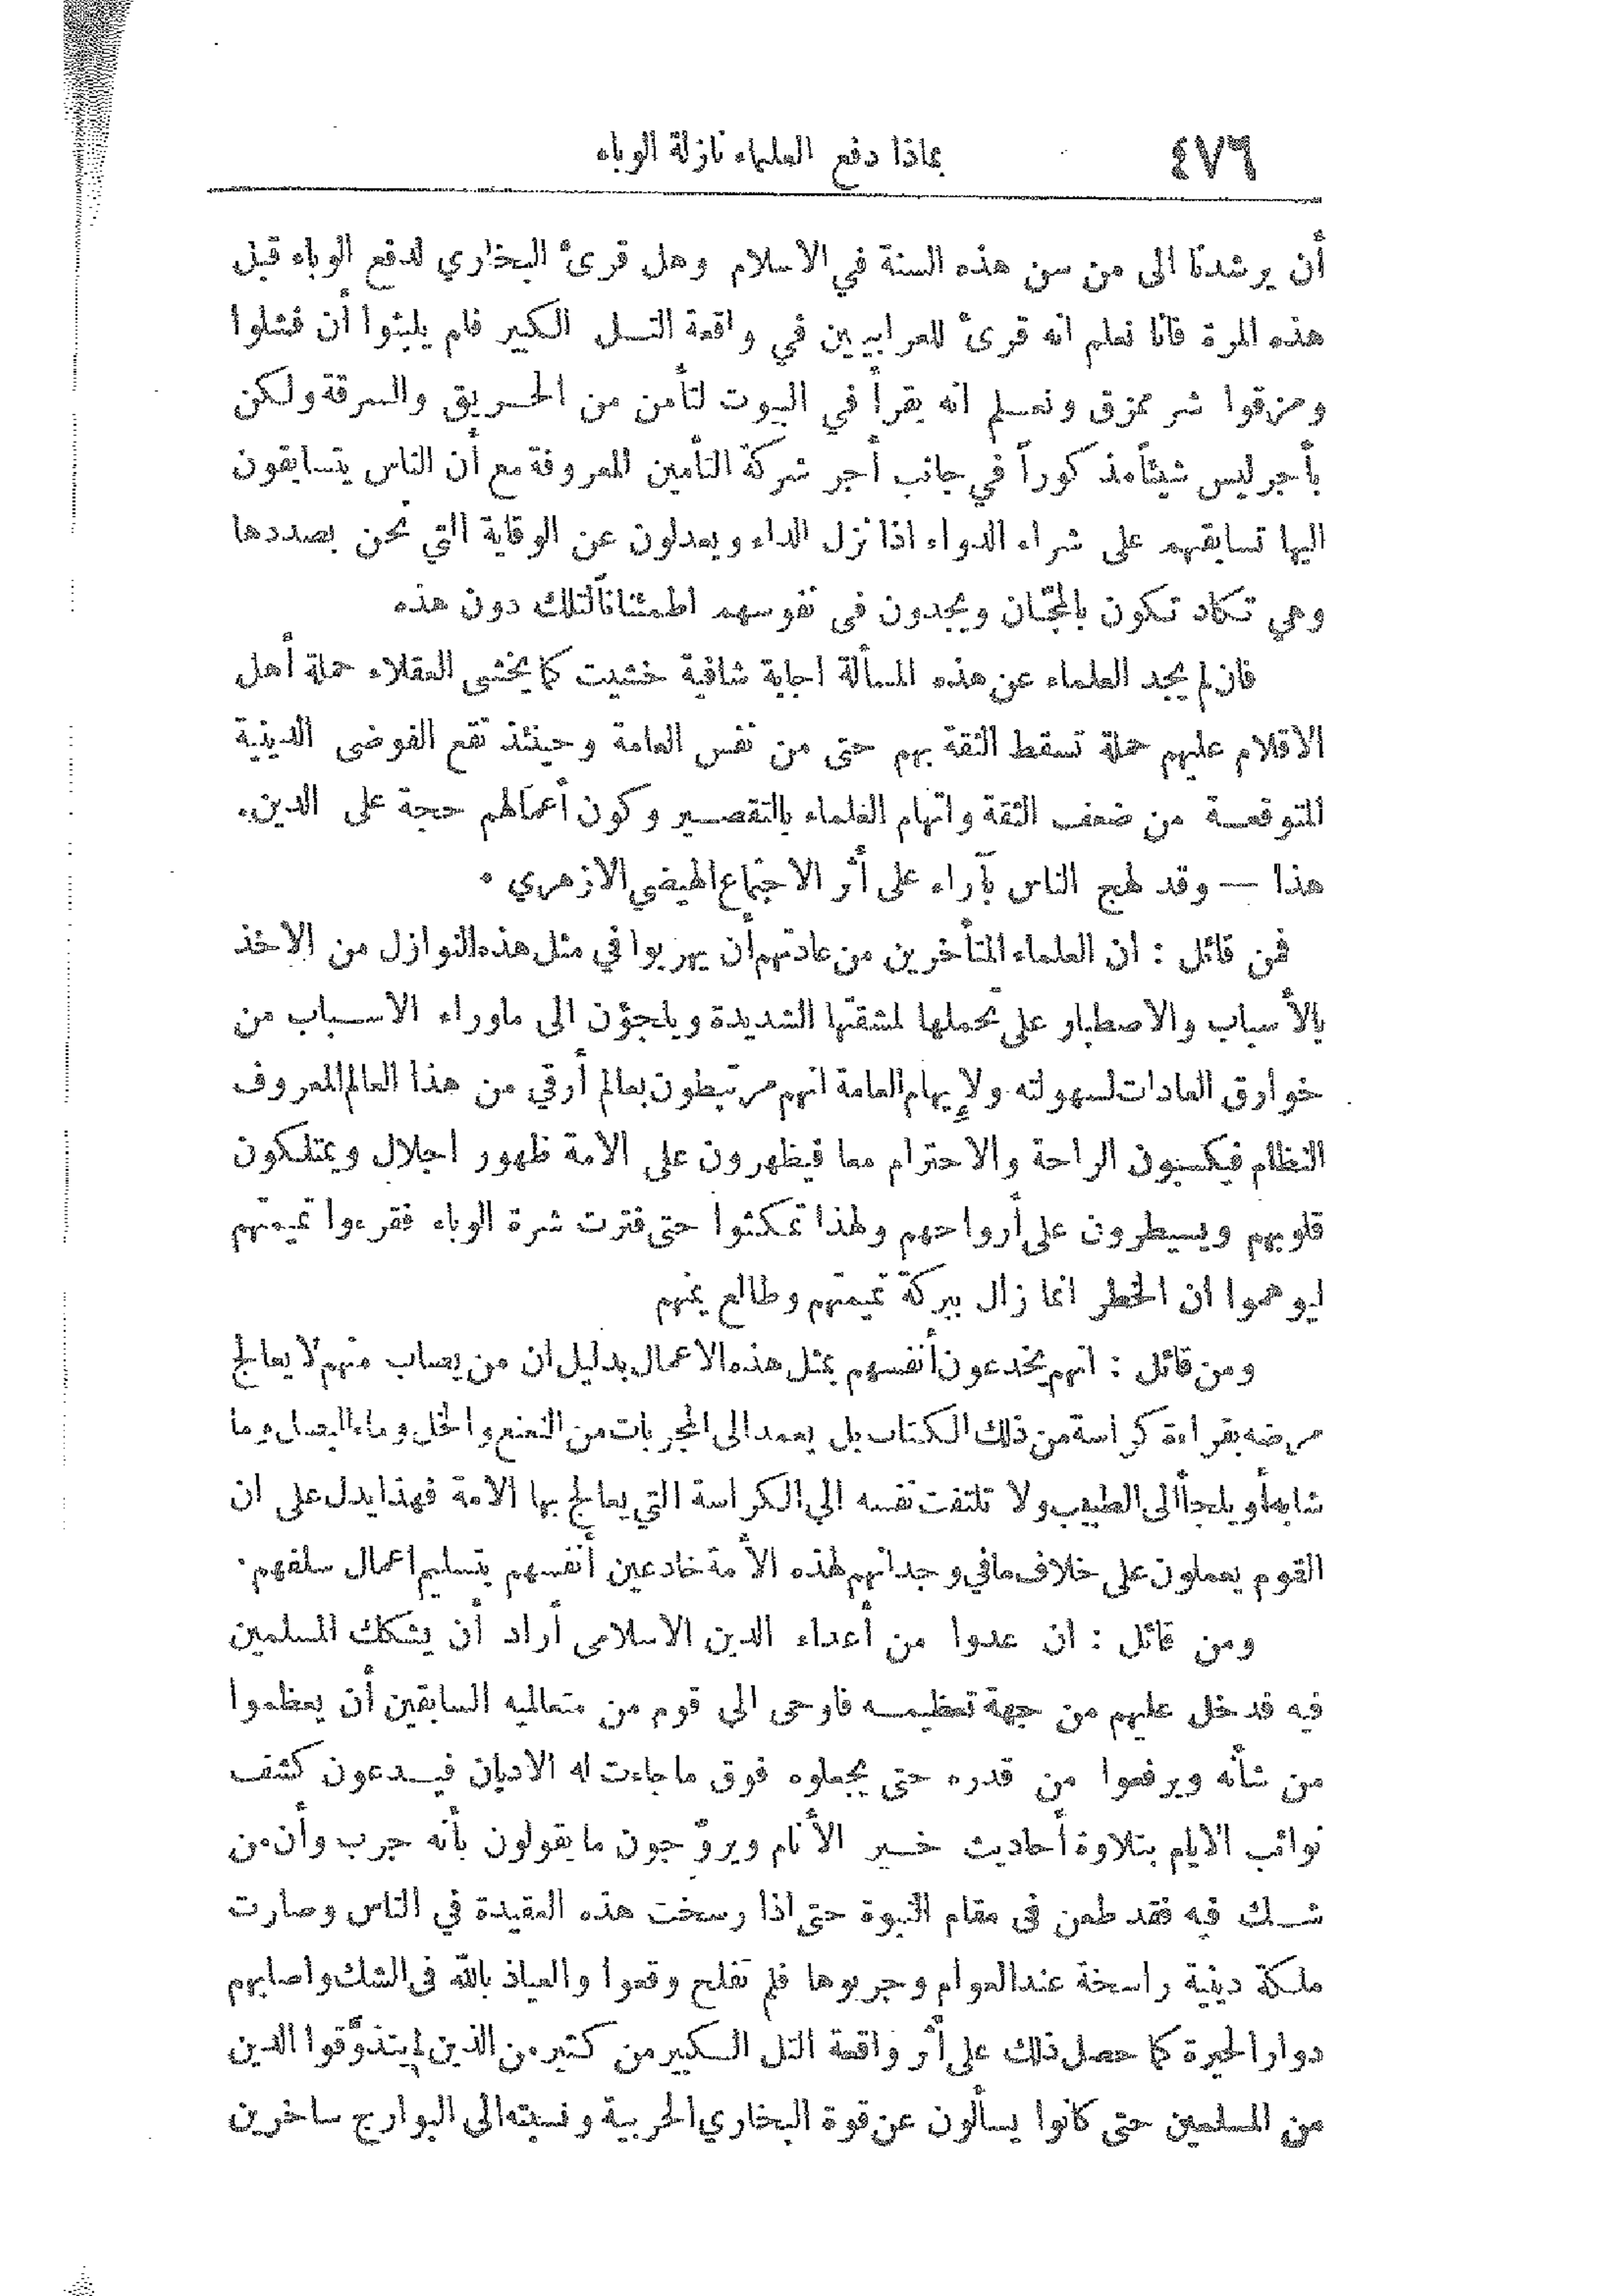 ٤٧٦ بماذا دفع العلماء نازلة الوباء
أن يرشدنا الى من سن هذه السنة في الاسلام وهل قرئ البخاري لدفع الوباء قبل
هذه المرة فانا نعلم انه قرئ للعرابيين في واقعة التـل الكبير فلم يلبثوا أن فشلوا
ومزقوا شر ممزق ونعـلم انه يقرأ في البيوت لتأمن من الحـريق والسرقة ولكن
بأجر ليس شيئاً مذكوراً في جانب أجر شركة التأمين المعروفة مع أن الناس يتسابقون
اليها تسابقهم على شراء الدواء اذا نزل الداء ويعدلون عن الوقاية التي نحن بصددها
وهي تكاد تكون بالمجّان ويجدون في نفوسهم اطمئناناً لتلك دون هذه
فان لم يجد العلماء عن هذه المسألة اجابة شافية خشيت كما يخشى العقلاء حملة أهل
الاقلام عليهم حملة تسقط الثقة بهم حتى من نفس العامة وحينئذ تقع الفوضى الدينية
المتوقعـة من ضعف الثقة واتهام العلماء بالتقصـير وكون أعمالهم حجة على الدين.
هذا — وقد لهج الناس بآراء على أثر الاجتماع الهيضي الازهري .
فمن قائل : ان العلماء المتأخرين من عادتهم أن يهربوا في مثل هذه النوازل من الاخذ
بالأسباب والاصطبار على تحملها لمشقتها الشديدة ويلجؤن الى ماوراء الاسـباب من
خوارق العادات لسهولته ولإيهام العامة انهم مرتبطون بعالم أرقي من هذا العالم المعروف
النظام فيكسبون الراحة والاحترام معا فيظهرون على الامة ظهور اجلال ويمتلكون
قلوبهم ويسيطرون على أرواحهم ولهذا تمكثوا حتى فترت شرة الوباء فقرءوا تميمتهم
ليوهموا ان الخطر انما زال ببركة تميمتهم وطالع يمنهم
ومن قائل : انهم يخدعون أنفسهم بمثل هذه الاعمال بدليل ان من يصاب منهم لا يعالج
مرضه بقراءة كراسة من ذلك الكتاب بل يعمد الى المجربات من النعنع والخل وماء البصل وما
شابه أو يلجأ الى الطبيب ولا تلتفت نفسه الى الكراسة التي يعالج بها الامة فهذا يدل على ان
القوم يعملون على خلاف مافي وجدانهم لهذه الأمة خادعين أنفسهم بتسليم اعمال سلفهم.
ومن قائل : ان عدوا من أعداء الدين الاسلامى أراد أن يشكك المسلمين
فيه فدخل عليهم من جهة تعظيمـه فاوحى الى قوم من متعالميه السابقين أن يعظموا
من شأنه ويرفعوا من قدره حتى يجعلوه فوق ماجاءت له الاديان فيـدعون كشف
نوائب الايام بتلاوة أحاديث خـير الأنام ويروّجون ما يقولون بأنه جرب وأن من
شـك فيه فقد طعن فى مقام النبوة حتى اذا رسخت هذه العقيدة في الناس وصارت
ملكة دينية راسخة عند العوام وجربوها فلم تفلح وقعوا والعياذ بالله فى الشك واصابهم
دوار الحيرة كما حصل ذلك على أثر واقعة التل الـكبير من كثير من الذين لم يتذوّقوا الدين
من المسلمين حتى كانوا يسألون عن قوة البخاري الحربية ونسبته الى البوارج ساخرين